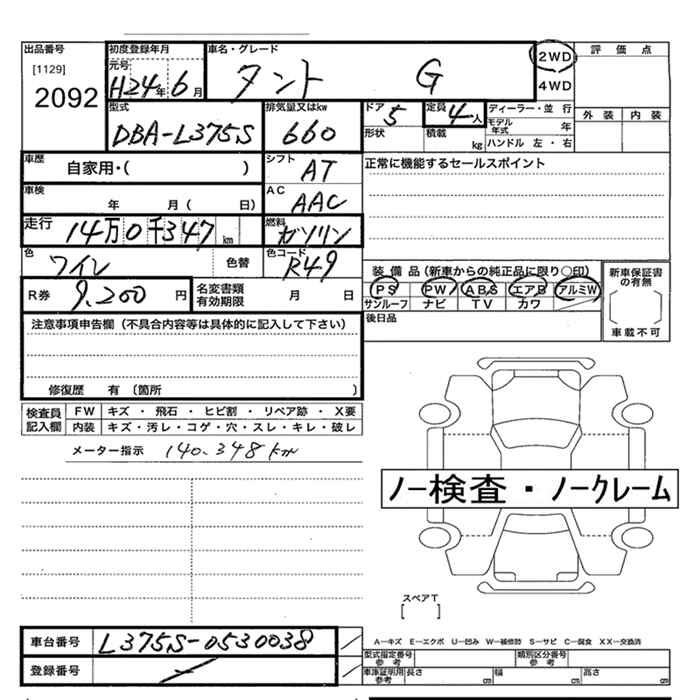 出品番号 初度登録年月 車名・グレード 2WD 評価点
[1129] 元号 タント G
2092 H24年6月 4WD
型式 排気量又はkw ドア 5 定員 4人 ディーラー・並行 外装 内装
DBA-L375S 660 形状 積載 kg モデル年式 年
ハンドル 左・右
車歴 自家用・( ) シフト AT 正常に機能するセールスポイント
車検 年 月( 日) AC AAC
走行 14万0千347km 燃料 ガソリン
色 ワイン 色替 色コード R49 装備品(新車からの純正品に限り○印) 新車保証書の有無
R券 9,200円 名変書類有効期限 月 日 PS PW ABS エアB アルミW
サンルーフ ナビ TV カワ
注意事項申告欄(不具合内容等は具体的に記入して下さい) 後日品 車載不可
修復歴 有 〔箇所 〕
検査員記入欄 FW キズ・飛石・ヒビ割・リペア跡・X要
内装 キズ・汚レ・コゲ・穴・スレ・キレ・破レ
メーター指示 140,348km
ノー検査・ノークレーム
スペアT
[ ]
車台番号 L375S-0530038 A-キズ E-エクボ U-凹み W-補修跡 S-サビ C-腐食 XX-交換済
型式指定番号 参考 類別区分番号 参考
登録番号 車庫証明用 参考 長さ cm 幅 cm 高さ cm